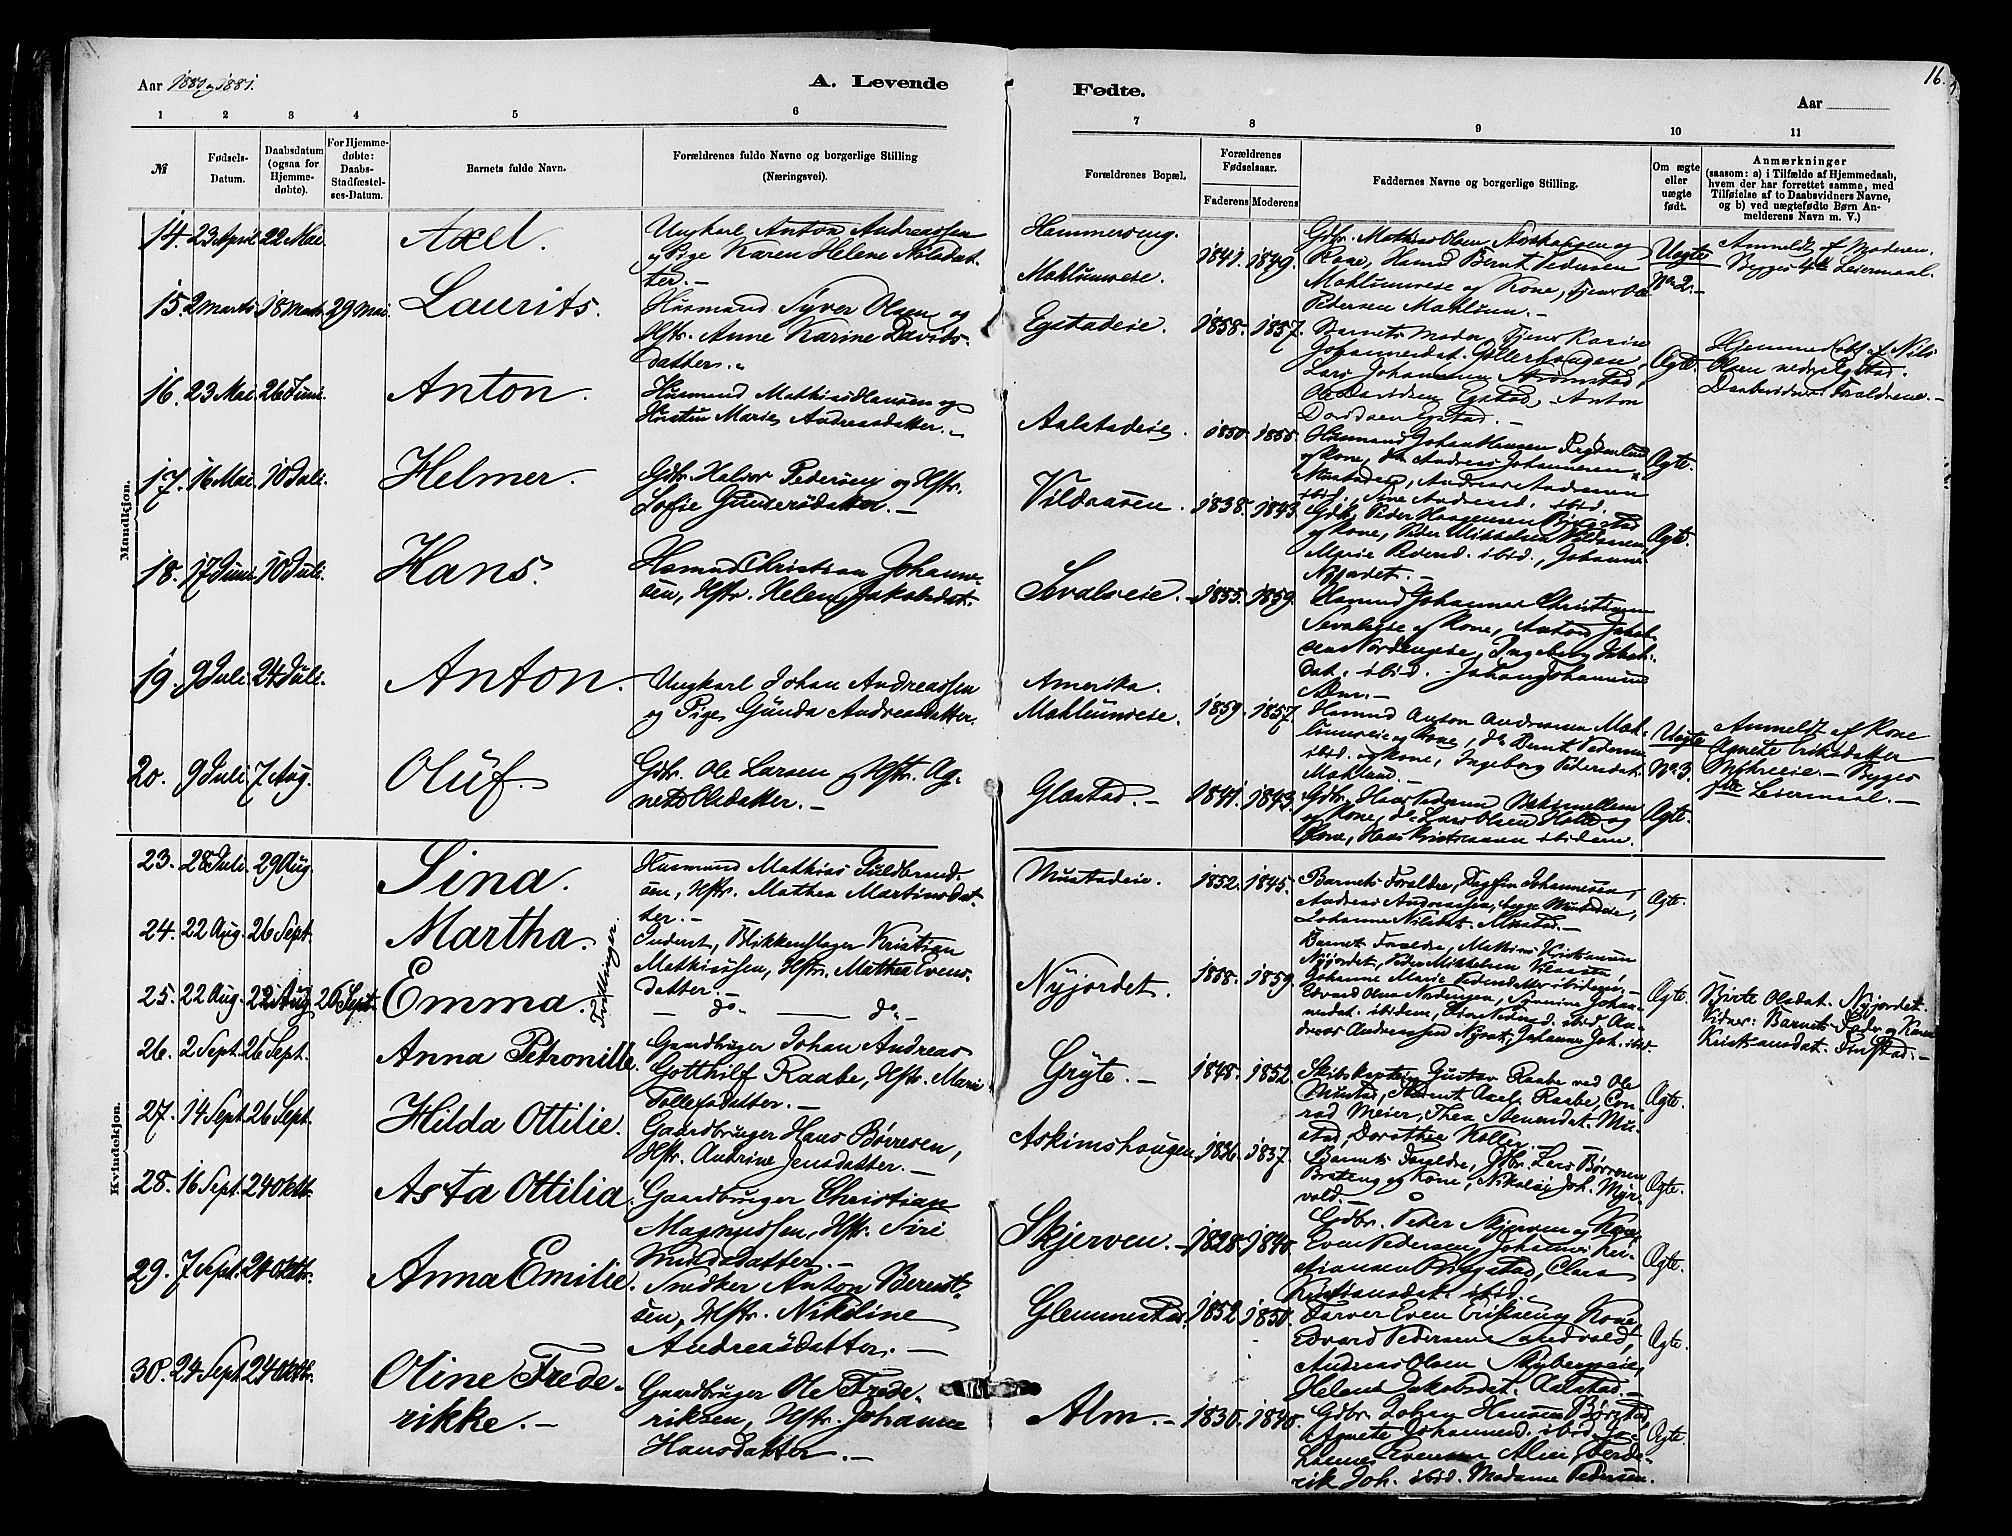 16.
Aar 1880 og 1881.
A. Levende
Fødte.
Aar
1 2 3 4 5 6
7 8 9 10 11
№
Fødsels-
Datum.
Daabsdatum
(ogsaa for
Hjemme-
døbte).
For Hjemme-
døbte:
Daabs-
Stadfæstel-
ses-Datum.
Barnets fulde Navn.
Forældrenes fulde Navne og borgerlige Stilling
(Næringsvei).
Forældrenes Bopæl.
Forældrenes
Fødselsaar.
Faderens Moderens
Faddernes Navne og borgerlige Stilling.
Om ægte
eller
uægte
født.
Anmærkninger
(saasom: a) i Tilfælde af Hjemmedaab,
hvem der har forrettet samme, med
Tilføielse af to Daabsvidners Navne,
og b) ved uægtefødte Børn An-
melderens Navn m. V.)
Mandkjøn.
14. 23 April 22 Mai. Axel.
Ungkarl Anton Andreassen
og Pige Karen Helene Nilsdat-
ter.-
Hammerseng.
Mahlumseie.
1841. 1849.
Gdbr. Mathias Olsen og
Kone, Bernt Pedersen
Mahlumseie og Kone,
Pedersen Mahlum.-
Uægte
No 2.-
Anmeldt af Moderen.
Begges 4de Leiermaal.
15. 2 Marts 18 Marts 29 Mai. Laurits.
Husmand Syver Olsen og
Hstr. Anne Karine Davids-
datter.
Egstadeie.
1858. 1857.
Barnets Moder, Karin
Johannesdat.
Lars Johannesen
Ole Davidsen Egstad, Anton
Davidsen Egstad.-
Ægte.
Hjemmedøbt af Nils
Olsen nedre Egstad.
Daabsvidner: Forældrene.-
16. 23 Mai. 26 Juni. Anton.
Husmand Mathias Hansen og
Kirstine Marie Andreasdatter.
Aalstadeie.
1850. 1855.
Husmand Johan Hansen
og Kone, Andreas Johannesen
Mustadeie, Andreas Andresen
ibid., Andresd. ibid.
Ægte.
17. 16 Mai. 10 Juli. Helmer.
Gdbr. Halvor Pedersen og Hstr.
Sofie Gundersdatter.-
Vildaasen.
1838. 1843.
Gdbr. Peder Haagensen
og Kone, Peder Mikkelsen Vildaasen,
Marie Pedersd. ibid., Johannes
Nyjordet.-
Ægte.
18. 17 Juni. 10 Juli. Hans.
Husmand Christian Johanne-
sen, Hstr. Helene Jakobsdat.
Sevalseie.-
1855. 1859.
Husmand Johannes Christiansen
Sevalseie og Kone, Anton Jakob-
sen Nordengseie, Ingeborg Jakobs-
dat. ibid. Johan Johannesen
Ægte.
19. 9 Juli. 24 Juli. Anton.
Ungkarl Johan Andreassen
og Pige Gunda Andreasdatter.
Amerika.
Mahlumseie.
1859. 1857.
Husmand Anton Andreassen Mah-
lumseie og Kone, do Bernt Pedersen
ibid. og Kone, Ingeborg Pedersdat.
Mahlum.-
Uægte
No 3.
Anmeldt af Kone
Agnete Eriksdatter
Begges
1ste Leiermaal.-
20. 9 Juli. 7 Aug. Oluf.
Gdbr. Ole Larsen og Hstr. Ag-
nete Olsdatter.-
Glæstad.-
1841. 1843.
Gdbr. Hans Pedersen
og Kone, do Lars Olsen Holte og
Kone, Hans Kristiansen ibidem.
Ægte.
Kvindekjøn.
23. 28 Juli. 29 Aug. Sina.
Husmand Mathias Guldbrand-
sen, Hstr. Mathea Martinsdat-
ter.-
Mustadeie.
1852. 1845.
Barnets Forældre, Dagfin Johannesen,
Andreas Andreassen, begge Mustadeie,
Johanne Nilsdat. Mustad.-
Ægte.
24. 22 Aug. 26 Sept. Martha.
Inderst, Blikkenslager Kristian
Mathiassen, Hstr. Mathea Evens-
datter.-
Tvillinger
Nyjordet.
1858. 1859.
Barnets Forældre, Mathias Kristiansen
Nyjordet, Peder Mikkelsen
Johanne Marie Pedersdatter ibidem,-
Edvard Olsen Nordengen, Johan-
nesdat. ibidem, ibid. An-
dreas Andreassen Johannes Joh. ibid.
Ægte.
25. 22 Aug. 22 Aug. 26 Sept. Emma.
- do - do -
Birte Olsdat. Nyjordet.
Vidner: Barnets Fader og Karen
Kristiansdat. -
26. 2 Sept. 26 Sept. Anna Petronille.
Gaardbruger Johan Andreas
Gotthilf Raabe, Hstr. Marie
Tollefsdatter.-
Gryte.-
1848. 1852.
Skibskaptein Gustav Raabe ved Ole
Mustad, Student Axel Raabe, Con-
rad Meier, Thea Mu-
stad, Dorothea Koller.-
Ægte.
27. 14 Sept. 26 Sept. Hilda Ottilie.
Gaardbruger Hans Børresen,
Hstr. Andrine Jensdatter.-
Askimshaugen
1826. 1837.
Barnets Forældre, Gdbr. Lars Børresen
Brateng og Kone, Nikolai Joh. Myr-
vold.-
Ægte.
28. 16 Sept. 24 Oktb. Asta Ottilia.
Gaardbruger Christian
Magnussen, Hstr. Siri
Knudsdatter.-
Skjerven.-
1828. 1840.
Gdbr. Peder Skjerven og Kone,
Even Pedersen, Johannes Kri-
stiansen Clara
Kristiansdat. ibid.
Ægte.
29. 7 Sept. 24 Oktb. Anna Emilie.
Snedker Anton Berent-
sen, Hstr. Nikoline
Andreasdatter.-
Glemmestad.
1852. 1850.
Farver Even Eriksen og Kone,
Edvard Pedersen
Andreas Olsen Skybergseie,
Helene Jakobsdat. Aalstad.-
Ægte.
30. 24 Sept. 24 Oktb. Oline Frede-
rikke.-
Gaardbruger Ole Frede-
riksen, Hstr. Johanne
Hansdatter.-
Alm.-
1830. 1840.
Gdbr. Johan Hansen Børstad,
Agnete Johannesd. ibid., Jo-
hannes Evensen Alm, Frede-
rik Joh. ibid. Madame Pedersen.
Ægte.